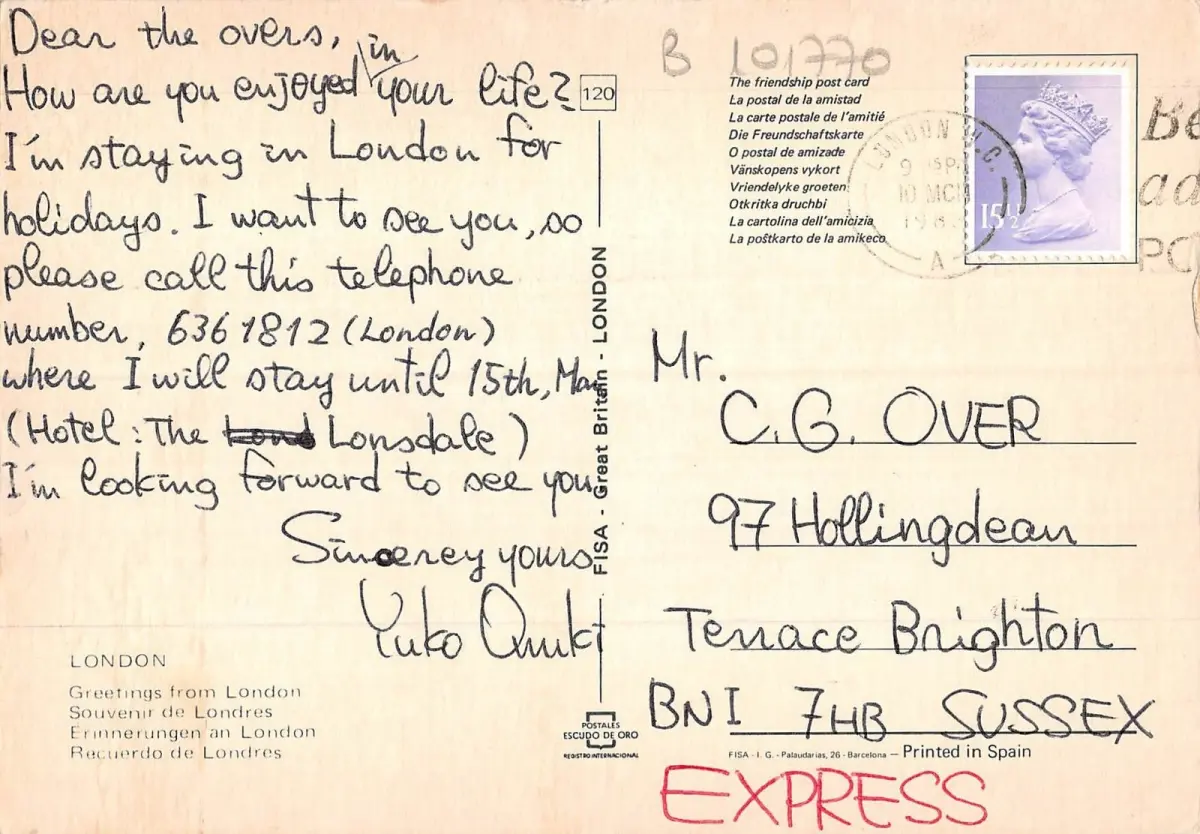 Dear the overs,
in
How are you enjoyed your life?
I'm staying in London for
holidays. I want to see you, so
please call this telephone
number, 636 1812 (London)
where I will stay until 15th, Mar
(Hotel : The Lonsdale)
I'm looking forward to see you.
Sincerey yours
Yuko
LONDON
Greetings from London
Souvenir de Londres
Erinnerungen an London
Recuerdo de Londres
120
FISA - Great Britain - LONDON
POSTALES
ESCUDO DE ORO
REGISTRO INTERNACIONAL
B 101770
The friendship post card
La postal de la amistad
La carte postale de l'amitié
Die Freundschaftskarte
O postal de amizade
Vänskopens vykort
Vriendelyke groeten
Otkritka druchbi
La cartolina dell'amicizia
La poŝtkarto de la amikeco
LONDON W.C.
10 MCH
A
15½
Be
ad
PO
Mr.
C.G. OVER
97 Hollingdean
Terrace Brighton
BN1 7HB SUSSEX
FISA - I. G. - Palaudarias, 26 - Barcelona — Printed in Spain
EXPRESS